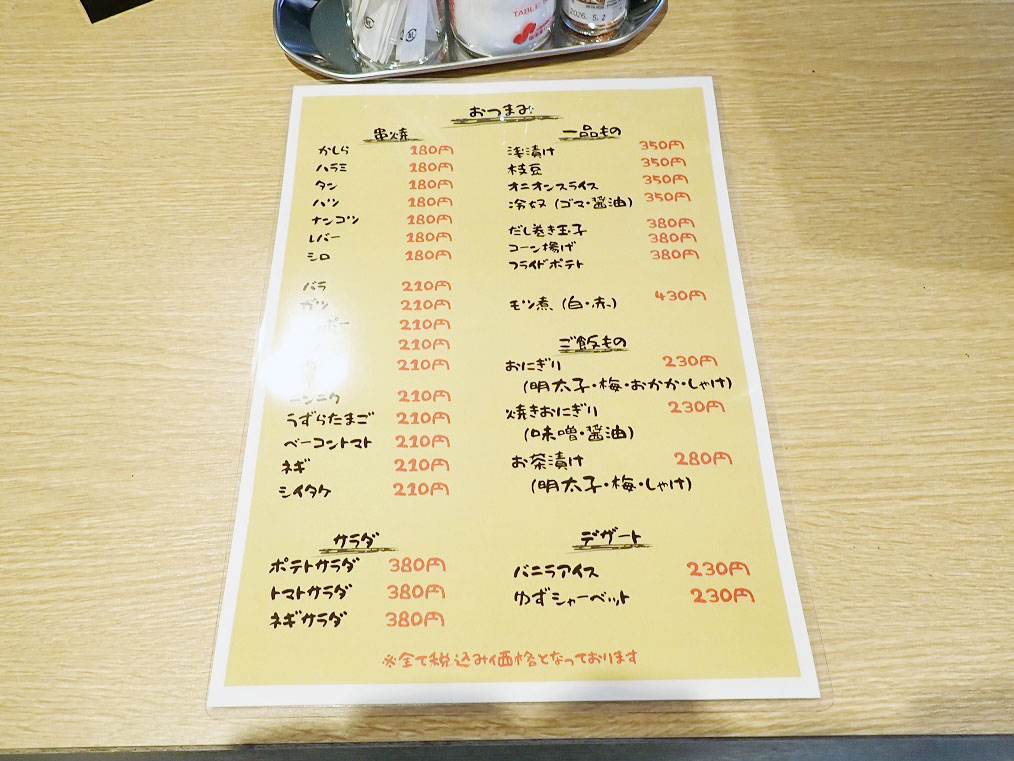 TABLE
2026. 5. 2
おつまみ
串焼
かしら 180円
ハラミ 180円
タン 180円
ハツ 180円
ナンコツ 180円
レバー 180円
シロ 180円
バラ 210円
ガツ 210円
210円
210円
210円
ニンニク 210円
うずらたまご 210円
ベーコントマト 210円
ネギ 210円
シイタケ 210円
サラダ
ポテトサラダ 380円
トマトサラダ 380円
ネギサラダ 380円
一品もの
浅漬け 350円
枝豆 350円
オニオンスライス 350円
冷奴(ゴマ・醤油) 350円
だし巻き玉子 380円
コーン揚げ 380円
フライドポテト 380円
モツ煮(白・赤) 430円
ご飯もの
おにぎり 230円
(明太子・梅・おかか・しゃけ)
焼きおにぎり 230円
(味噌・醤油)
お茶漬け 280円
(明太子・梅・しゃけ)
デザート
バニラアイス 230円
ゆずシャーベット 230円
※全て税込み価格となっております